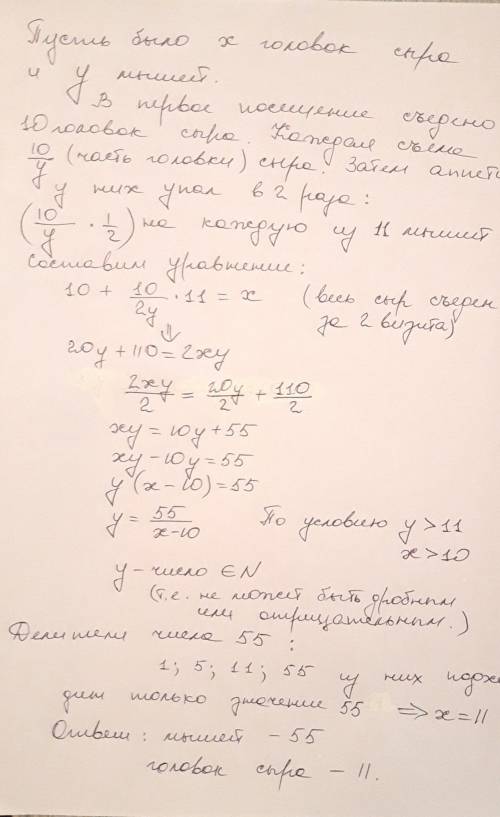 Пусть было x головок сыра
и y мышей.
В первое посещение съедено
10 головок сыра. Каждая съела
10/y (часть головки) сыра. Затем аппети
у них упал в 2 раза:
(10/y · 1/2) на каждую из 11 мышей
Составим уравнение:
10 + 10/2y · 11 = x (весь сыр съеден
за 2 визита)
⇓
20y + 110 = 2xy
2xy/2 = 20y/2 + 110/2
xy = 10y + 55
xy - 10y = 55
y (x - 10) = 55
y = 55/x-10 По условию y > 11
x > 10
y - число ∈ N
(т.е. не может быть дробным
или отрицательным.)
Делители числа 55 :
1; 5; 11; 55 из них подхо
дит только значение 55 ⇒ x = 11
Ответ: мышей - 55
головок сыра - 11.